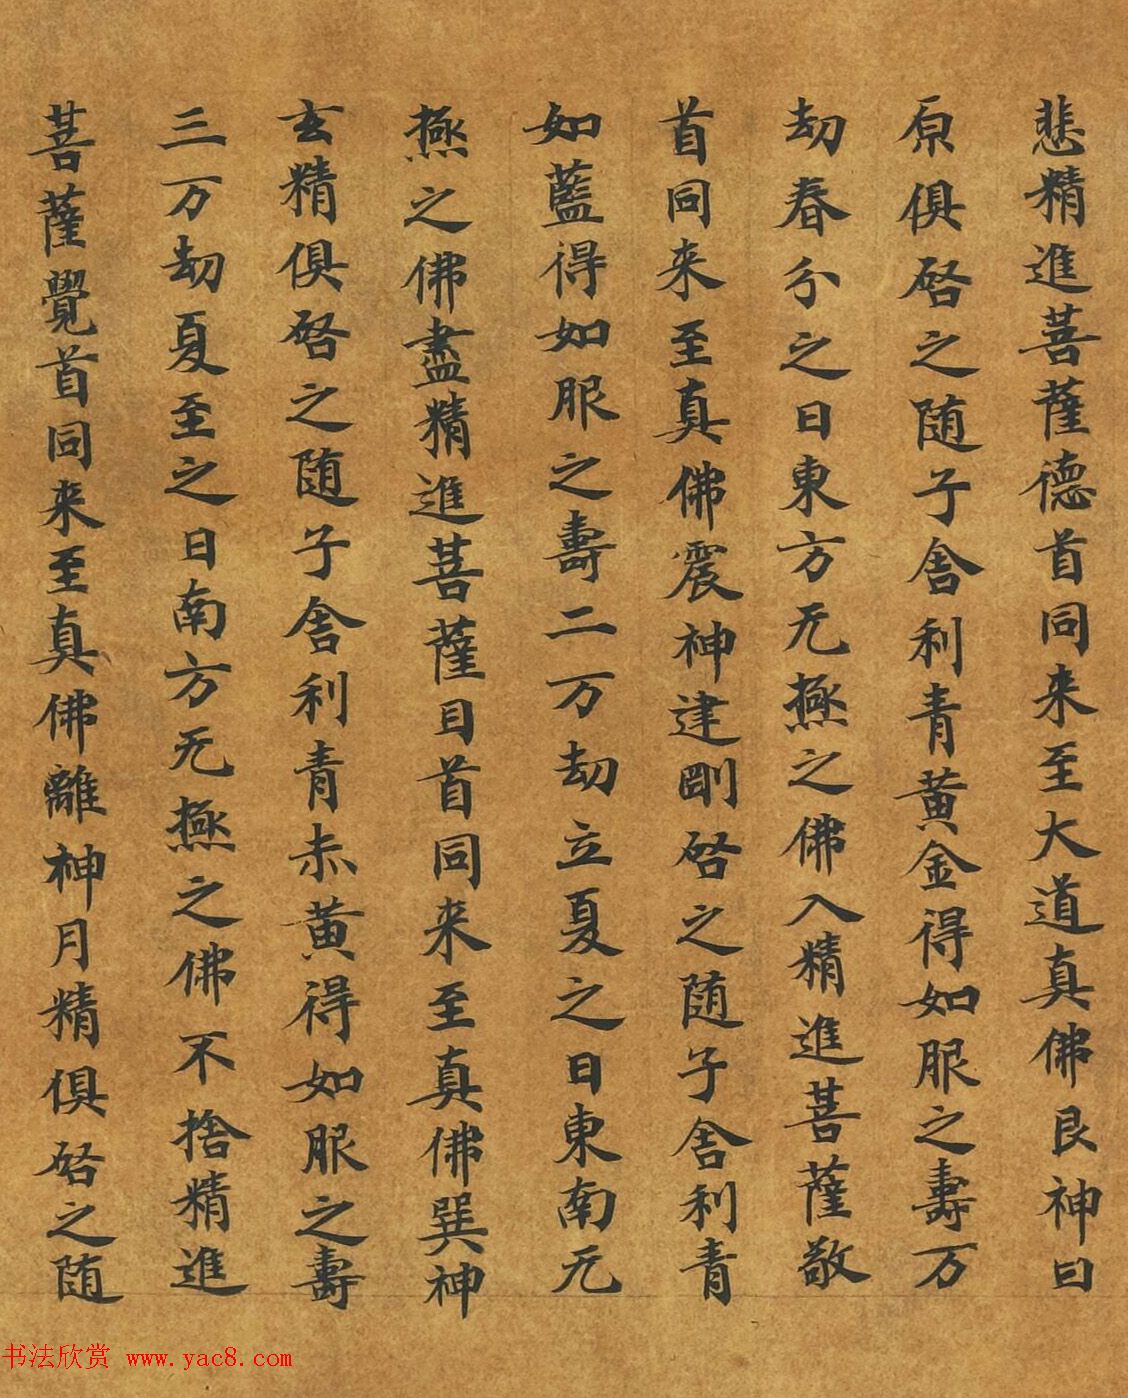 悲精進菩薩德首同来至大道真佛艮神曰
原俱啓之随子舍利青黄金得如服之壽万
劫春分之日東方无極之佛入精進菩薩敬
首同来至真佛震神建剛啓之随子舍利青
如藍得如服之壽二万劫立夏之日東南无
極之佛盡精進菩薩目首同来至真佛巽神
玄精俱啓之随子舍利青赤黄得如服之壽
三万劫夏至之日南方无極之佛不捨精進
菩薩覺首同来至真佛離神月精俱啓之随
书法欣赏 www.yac8.com